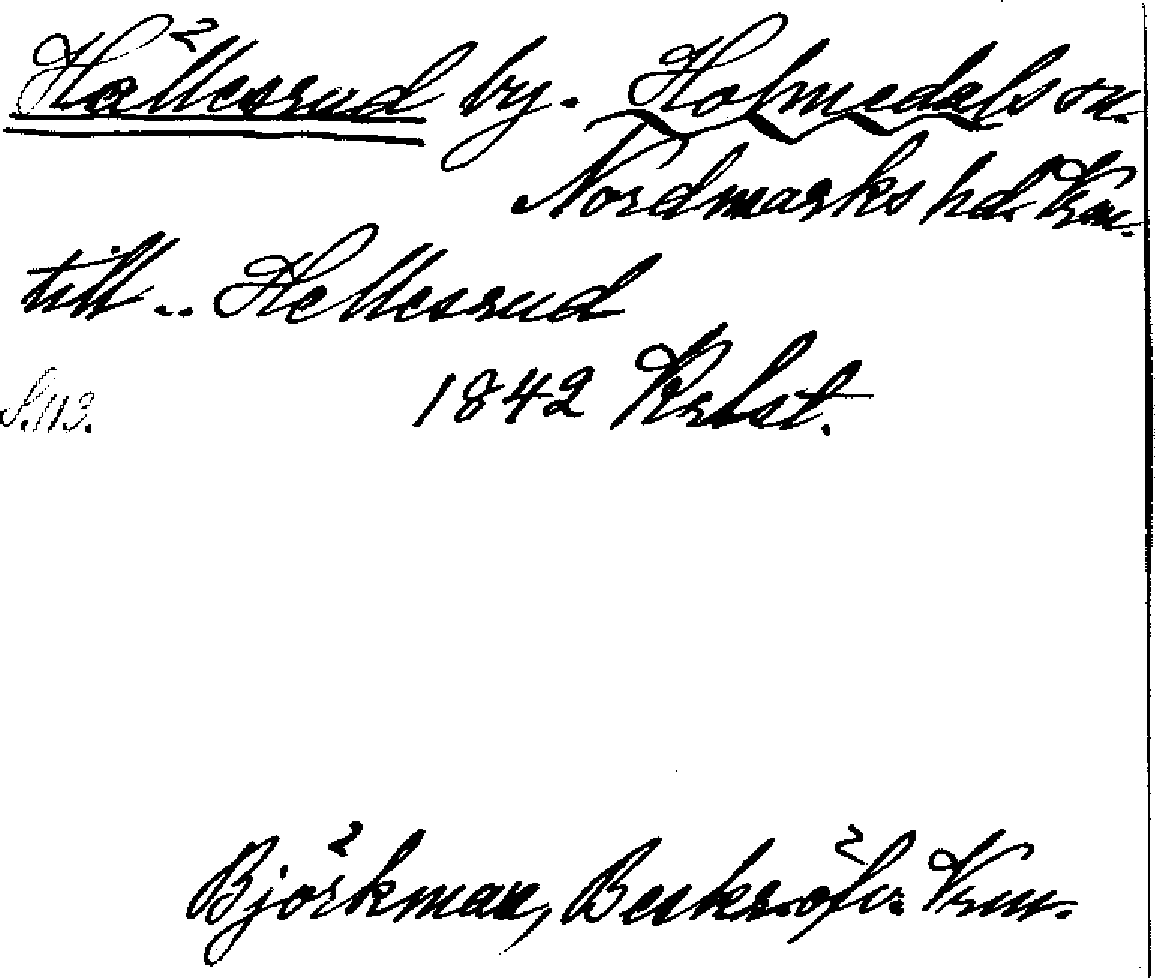 Hällesrud by. Holmedals sn.
Nordmarks hd. Vrm.
till .. Hellesrud
S. 113. 1842 Krbst.
Björkman, Beskr. öfv. Vrm.